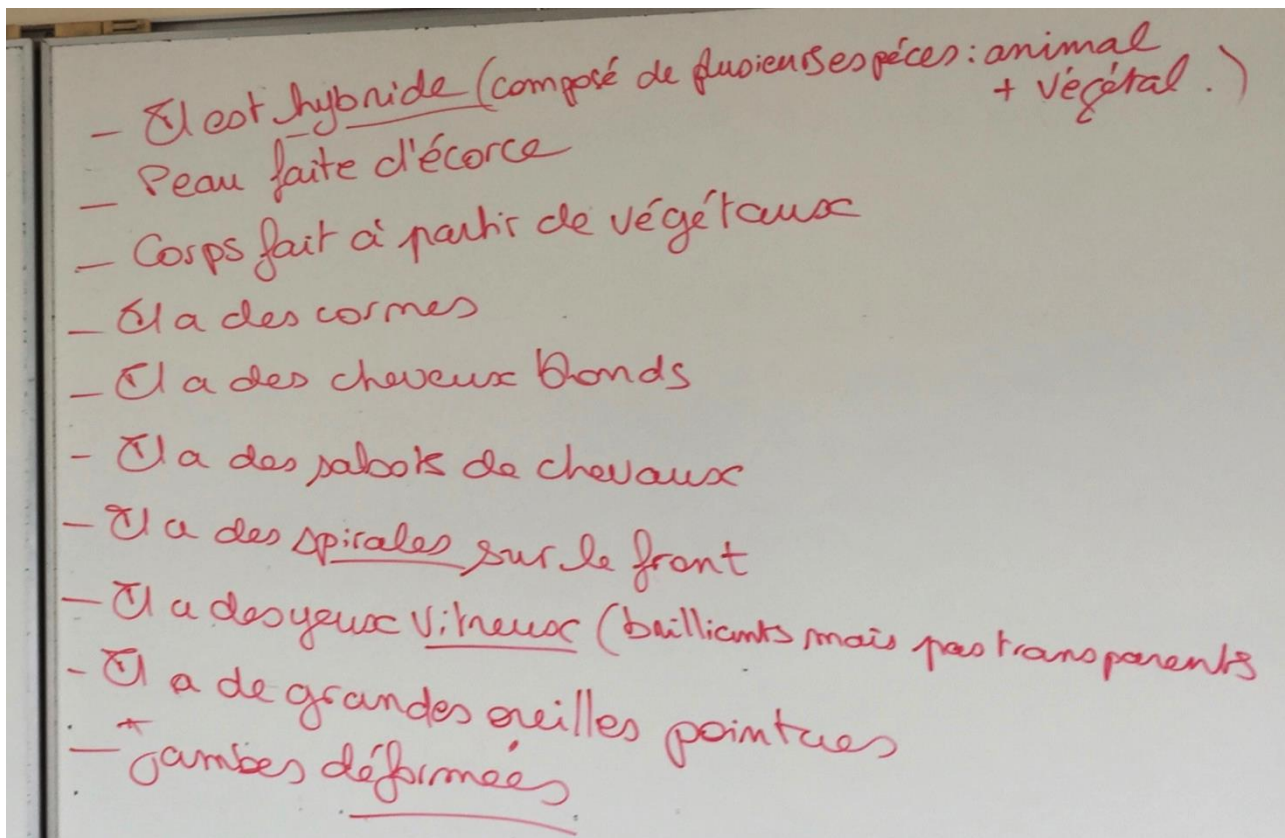 - Il est hybride (composé de plusieurs espéces : animal
+ végétal.)
- Peau faite d'écorce
- Corps fait à partir de végétaux
- Il a des cornes
- Il a des cheveux blonds
- Il a des sabots de chevaux
- Il a des spirales sur le front
- Il a des yeux vitreux (brilliants mais pas transparents
- Il a de grandes oreilles pointues
- Jambes déformées